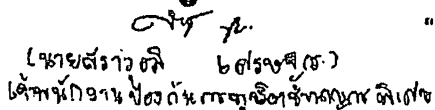 (นายสราวุฒิ เศรษฐกร)
เจ้าพนักงานป้องกันการทุจริตชำนาญการพิเศษ